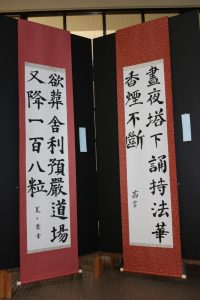 晝夜塔下誦持法華
香煙不斷
欲葬舍利預嚴道場
又降一百八粒